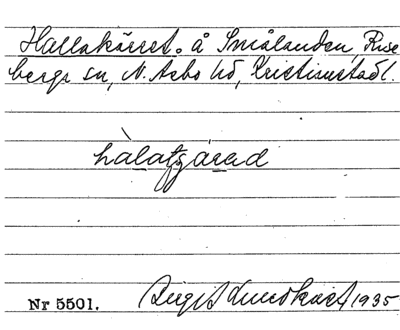 Hallakärret. å Smålanden, Ruse
bergs sn, N. Åsbo hd, Kristianstads l.
hàlaₓgärad
Nr 5501. Birgit Lundkvist 1935